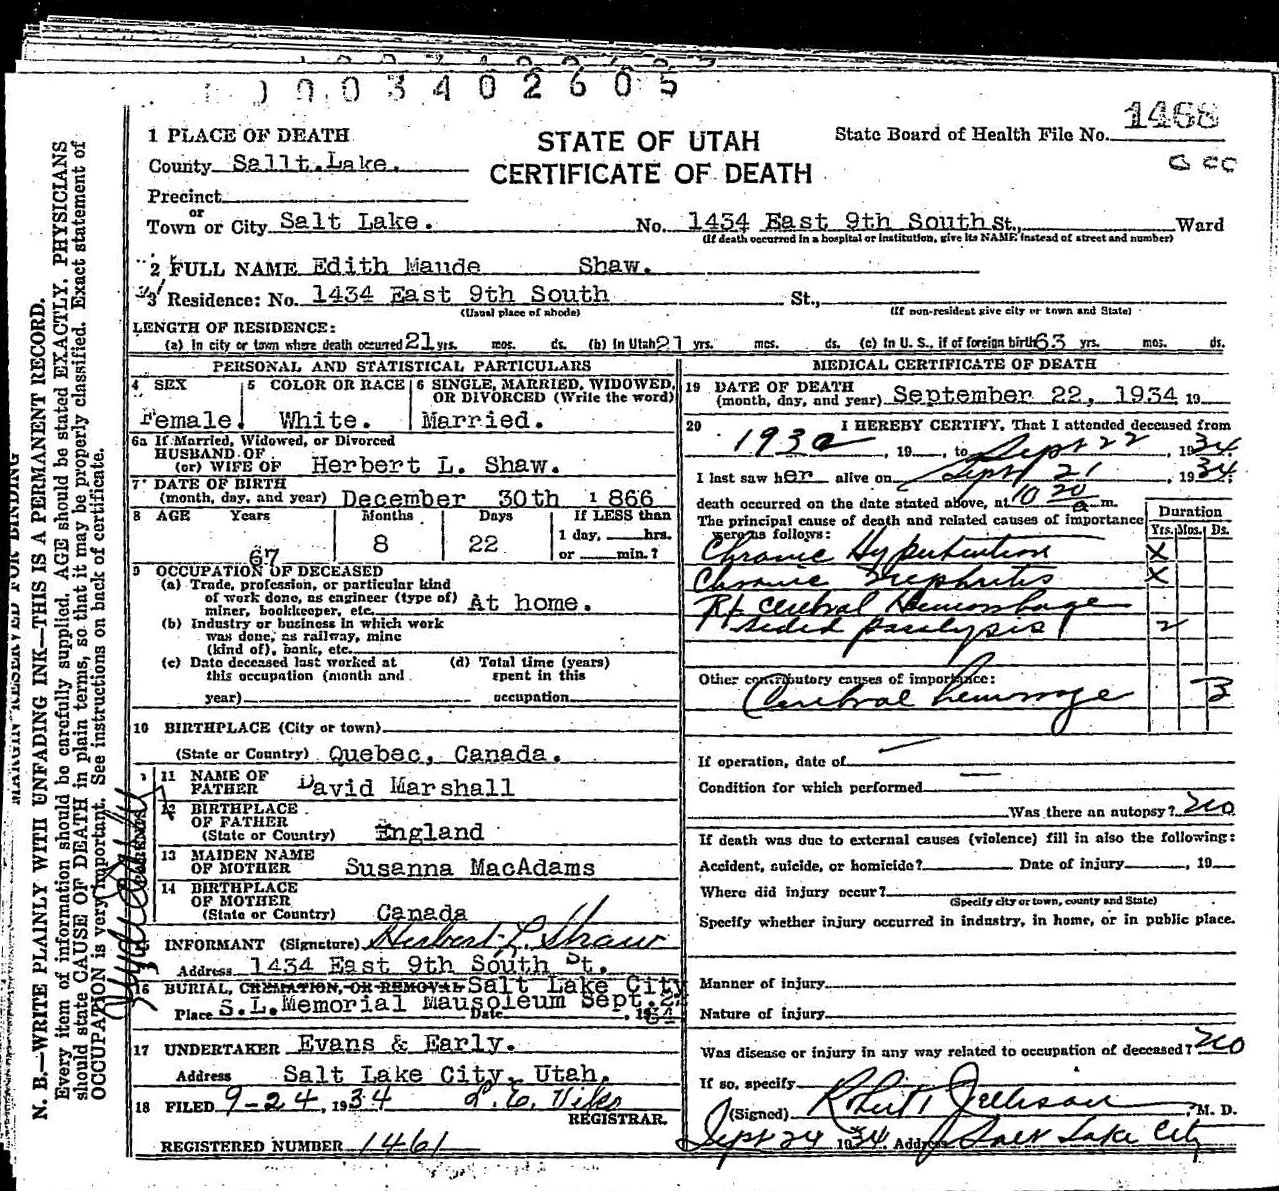 0003402605
1468
1 PLACE OF DEATH
STATE OF UTAH
State Board of Health File No.
County Sallt.Lake.
CERTIFICATE OF DEATH
Precinct
or
Town or City Salt Lake. No. 1434 East 9th South St., Ward
(If death occurred in a hospital or institution, give its NAME instead of street and number)
2 FULL NAME Edith Maude Shaw.
3 Residence: No. 1434 East 9th South St.,
(Usual place of abode) (If non-resident give city or town and State)
LENGTH OF RESIDENCE:
(a) In city or town where death occurred 21 yrs. mos. ds. (b) In Utah 21 yrs. mos. ds. (c) In U. S., if of foreign birth 63 yrs. mos. ds.
PERSONAL AND STATISTICAL PARTICULARS
4 SEX
Female.
5 COLOR OR RACE
White.
6 SINGLE, MARRIED, WIDOWED,
OR DIVORCED (Write the word)
Married.
6a If Married, Widowed, or Divorced
HUSBAND OF
(or) WIFE OF Herbert L. Shaw.
7 DATE OF BIRTH
(month, day, and year) December 30th 1866
8 AGE Years Months Days If LESS than
67 8 22 1 day, hrs.
or min.?
9 OCCUPATION OF DECEASED
(a) Trade, profession, or particular kind
of work done, as engineer (type of)
miner, bookkeeper, etc. At home.
(b) Industry or business in which work
was done, as railway, mine
(kind of), bank, etc.
(c) Date deceased last worked at
this occupation (month and
year)
(d) Total time (years)
spent in this
occupation
10 BIRTHPLACE (City or town)
(State or Country) Quebec, Canada.
PARENTS
11 NAME OF
FATHER David Marshall
12 BIRTHPLACE
OF FATHER
(State or Country) England
13 MAIDEN NAME
OF MOTHER Susanna MacAdams
14 BIRTHPLACE
OF MOTHER
(State or Country) Canada
INFORMANT (Signature) Herbert L. Shaw
Address 1434 East 9th South St.
16 BURIAL, CREMATION, OR REMOVAL Salt Lake City
Place S.L. Memorial Mausoleum Date Sept. 1934
17 UNDERTAKER Evans & Early.
Address Salt Lake City, Utah.
18 FILED 9-24, 1934
REGISTRAR.
REGISTERED NUMBER 1461
MEDICAL CERTIFICATE OF DEATH
19 DATE OF DEATH
(month, day, and year) September 22, 1934 19
20 I HEREBY CERTIFY, That I attended deceased from
19 , to Sept 22, 1934.
I last saw her alive on Sept 21 1934.
death occurred on the date stated above, at 10 20 a m.
The principal cause of death and related causes of importance
were as follows:
Duration
Yrs. Mos. Ds.
Chronic Hypertention X
Chronic Nephritis X
Rt Cerebral Hemorrhage
sided paralysis 2
Other contributory causes of importance:
Cerebral hemorrage 3
If operation, date of
Condition for which performed
Was there an autopsy? no
If death was due to external causes (violence) fill in also the following:
Accident, suicide, or homicide? Date of injury , 19
Where did injury occur?
(Specify city or town, county and State)
Specify whether injury occurred in industry, in home, or in public place.
Manner of injury
Nature of injury
Was disease or injury in any way related to occupation of deceased? no
If so, specify
(Signed) , M. D.
Sept 24 1934. Address Salt Lake City
N. B.—WRITE PLAINLY WITH UNFADING INK—THIS IS A PERMANENT RECORD.
Every item of information should be carefully supplied. AGE should be stated EXACTLY. PHYSICIANS
should state CAUSE OF DEATH in plain terms, so that it may be properly classified. Exact statement of
OCCUPATION is very important. See instructions on back of certificate.